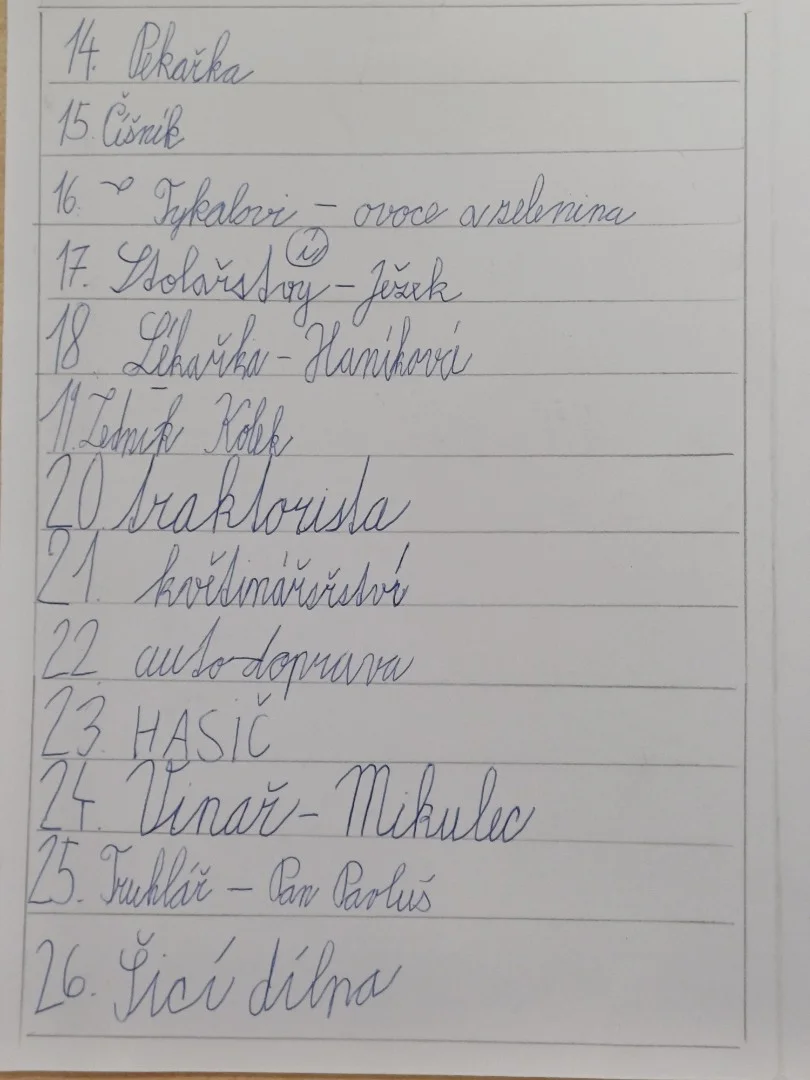 14. Pekařka
15. Číšník
16. Tykalovi - ovoce a zelenina
17. Stolařstvy - Ježek
í
18 Lékařka - Haníková
19. Zedník Kolek
20 traktorista
21. květinářsřství
22 autodoprava
23. HASIČ
24. Vinař - Mikulec
25. Truhlář - Pan Pavluš
26. Šicí dílna